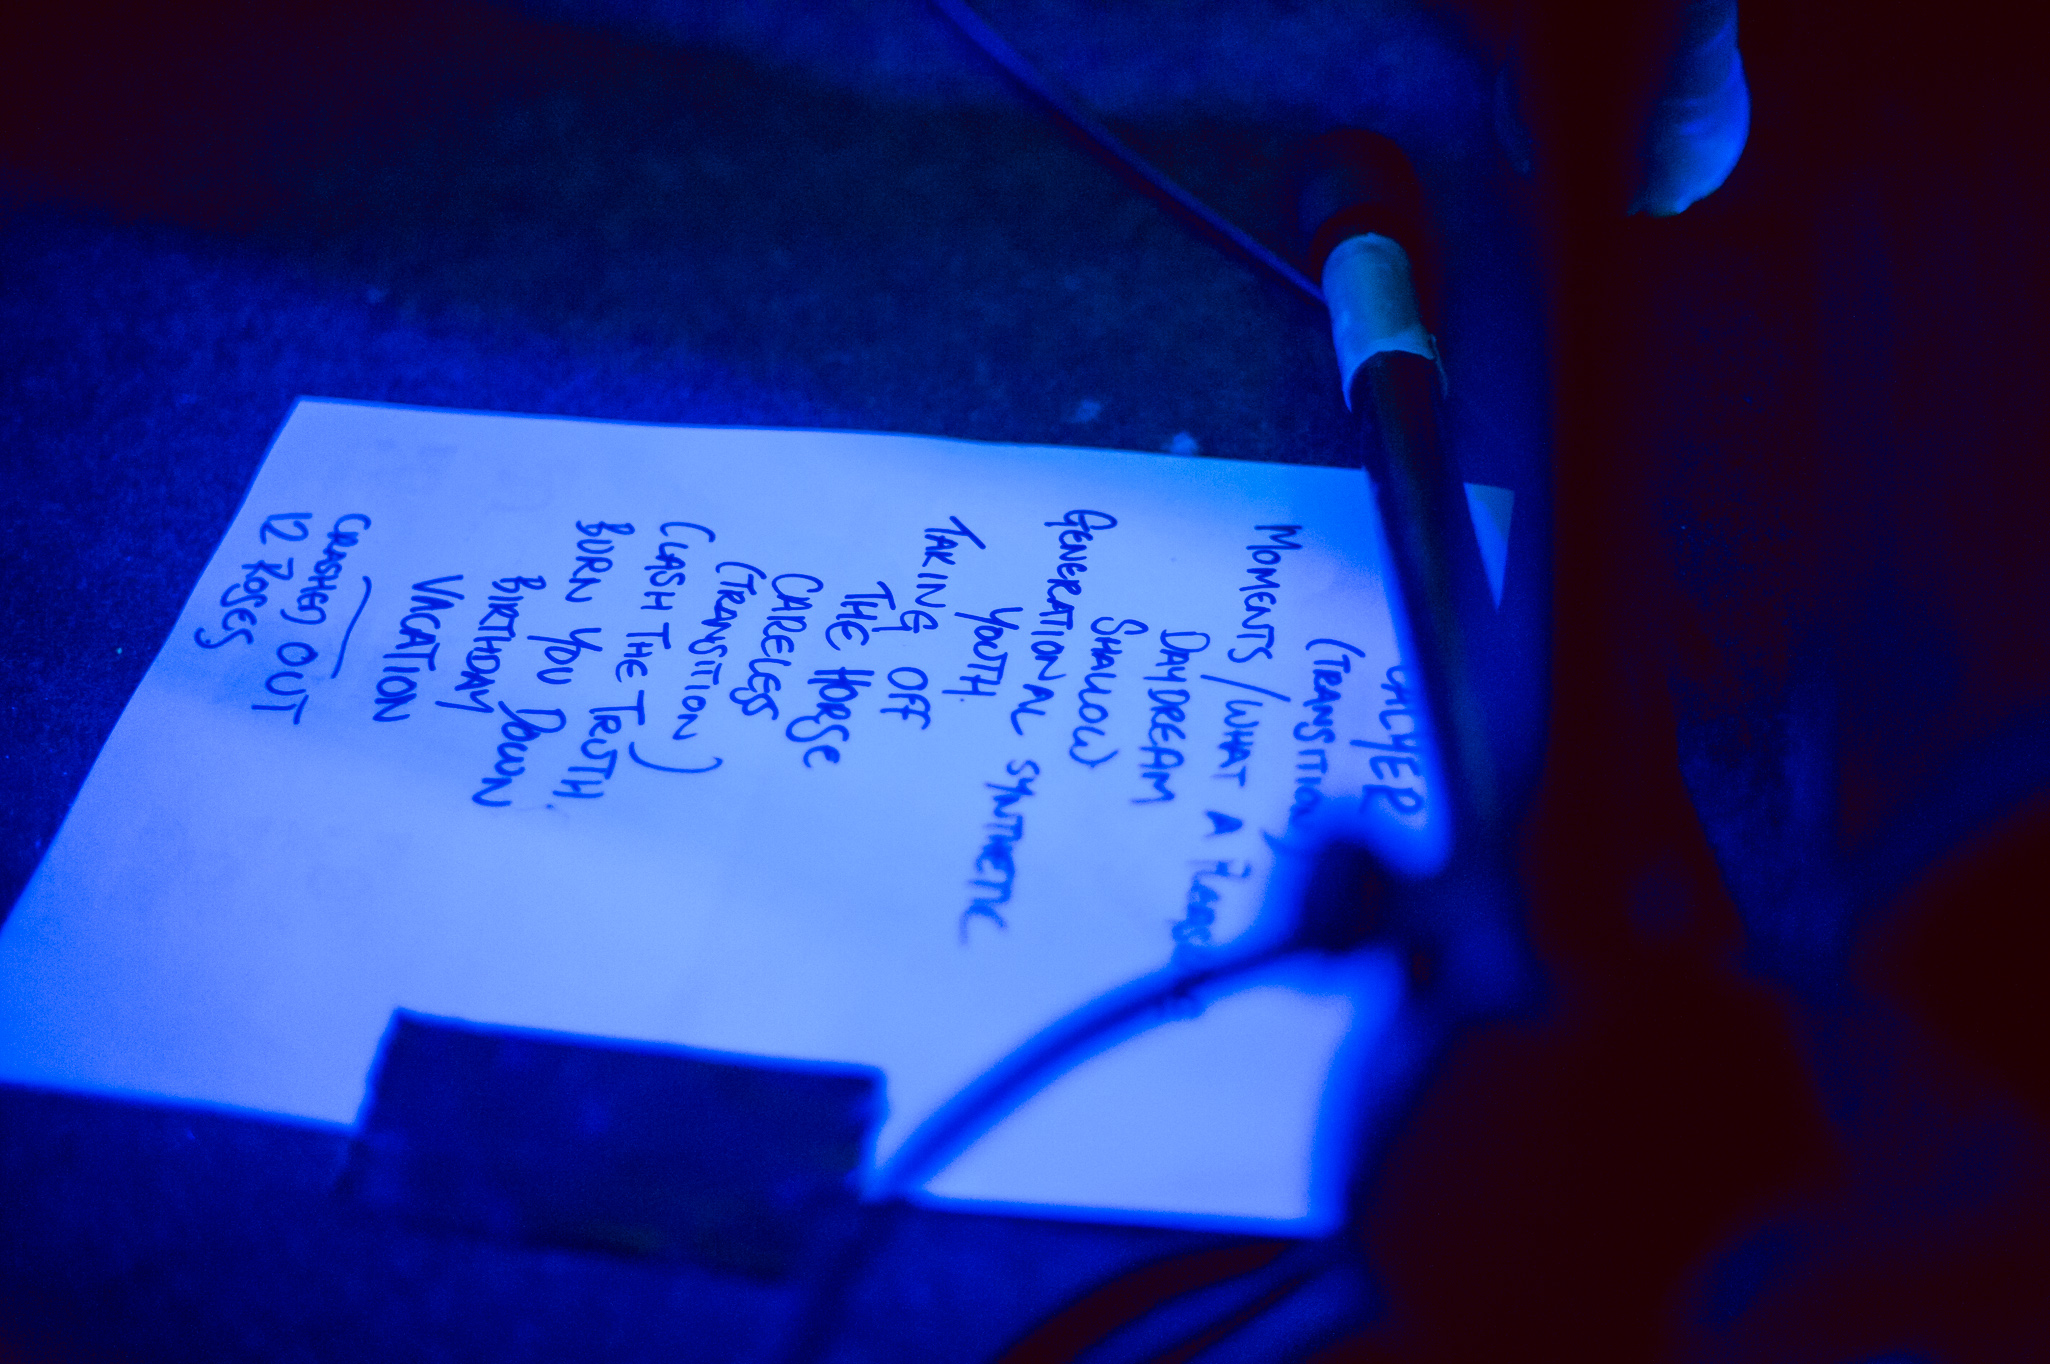 CALYER
(TRANSITION)
MOMENTS / WHAT A
DAYDREAM
SHALLOW
GENERATIONAL SYNTHETIC
YOUTH.
TAKING OFF
THE HORSE
CARELESS
(TRANSITION)
CLASH THE TRUTH.
BURN YOU DOWN
BIRTHDAY
VACATION
CRASHED OUT
12 ROSES